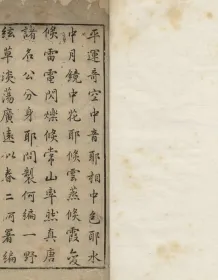 平運哥空中音耶相中色耶水
中月鏡中花耶候雲蒸候霞
候雷電閃爍候常山率然真唐
諸名公分身耶問製何編一野
絃草淡蕩廣遠以春二河署編